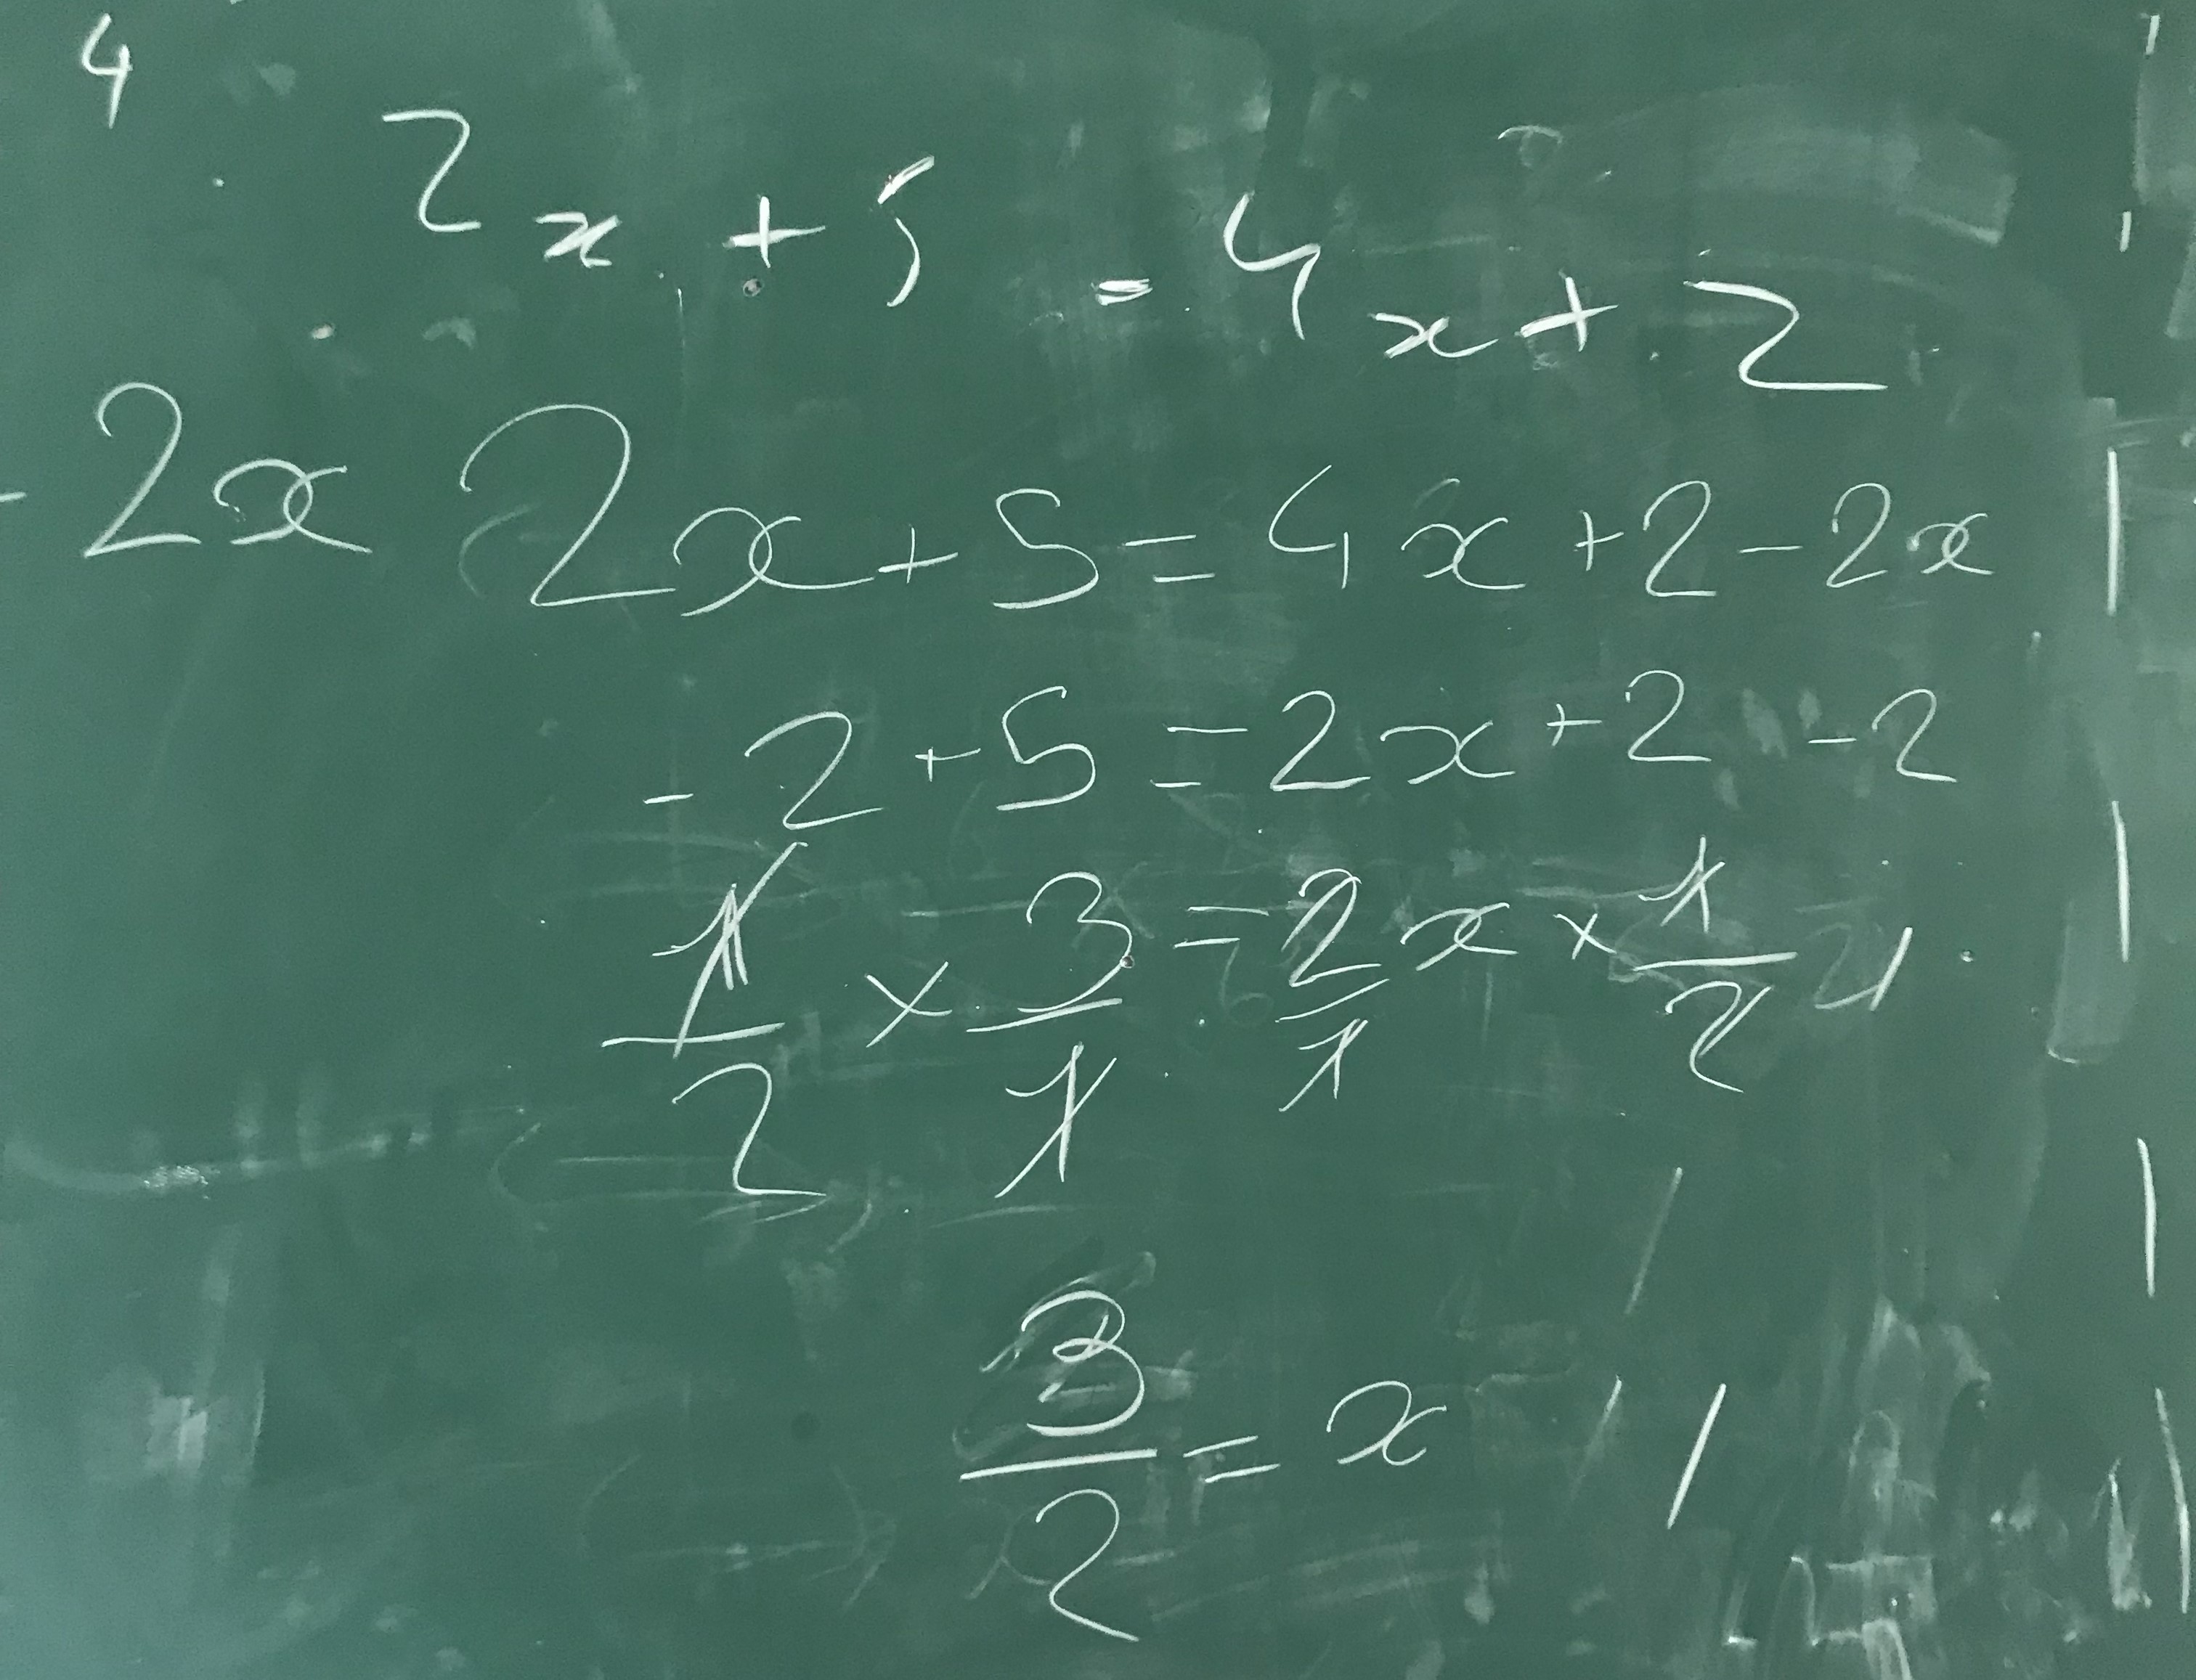 4
2x + 5 = 4x + 2
- 2x 2x + 5 = 4x + 2 - 2x
- 2 + 5 = 2x + 2 - 2
1/2 × 3/1 = 2/1 x × 1/2
3/2 = x